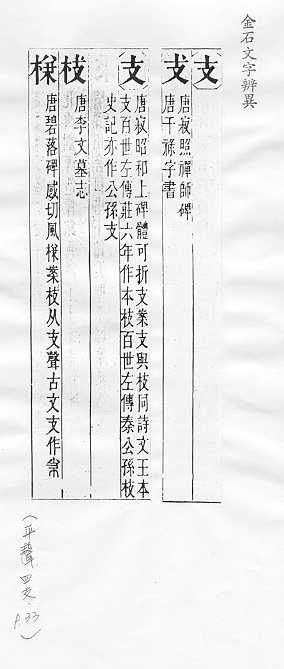 金石文字辨異
支
唐寂照禪師碑
攴
唐干祿字書
支
唐寂昭和上碑體可折支業支與枝同詩文王本
支百世左傳莊六年作本枝百世左傳泰公孫枝
史記亦作公孫支
枝
唐李文墓志
唐碧落碑感切風枝案枝从支聲古文支作
(平聲 四支. P.33)